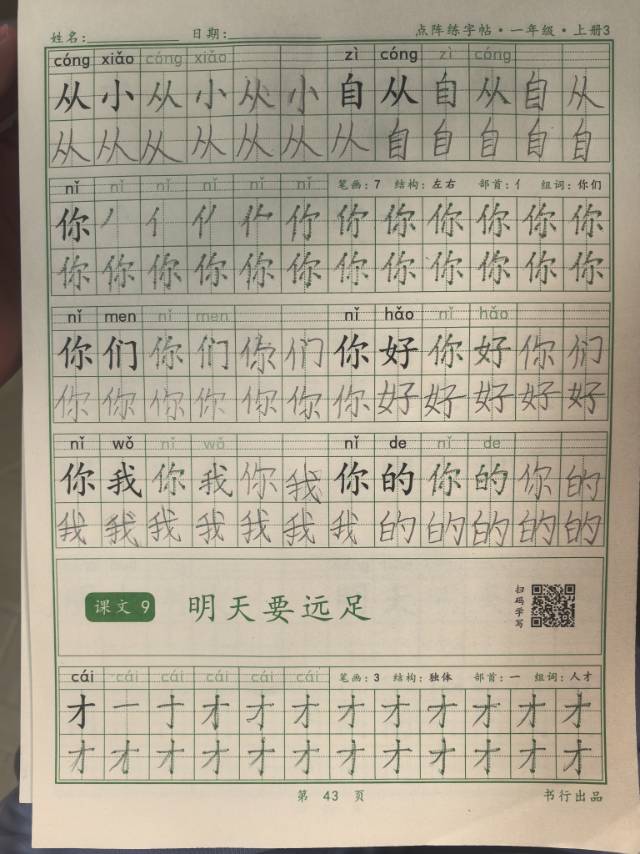 姓名： 日期： 点阵练字帖·一年级·上册3
cóng xiǎo cóng xiǎo zì cóng zì cóng
从 小 从 小 从 小 自 从 自 从 自 从
从 从 从 从 从 从 从 自 自 自 自 自
nǐ nǐ nǐ nǐ nǐ nǐ 笔画：7 结构：左右 部首：亻 组词：你们
你 丿 亻 你 你 你 你 你 你 你
你 你 你 你 你 你 你 你 你 你 你 你
nǐ men nǐ men nǐ hǎo nǐ hǎo
你 们 你 们 你 们 你 好 你 好 你 们
你 你 你 你 你 你 你 好 好 好 好 好
nǐ wǒ nǐ wǒ nǐ de nǐ de
你 我 你 我 你 我 你 的 你 的 你 的
我 我 我 我 我 我 我 的 的 的 的 的
课文 9 明天要远足 扫码学写
cái cái cái cái cái cái 笔画：3 结构：独体 部首：一 组词：人才
才 一 十 才 才 才 才 才 才 才 才 才
才 才 才 才 才 才 才 才 才 才 才 才
第 43 页 书行出品